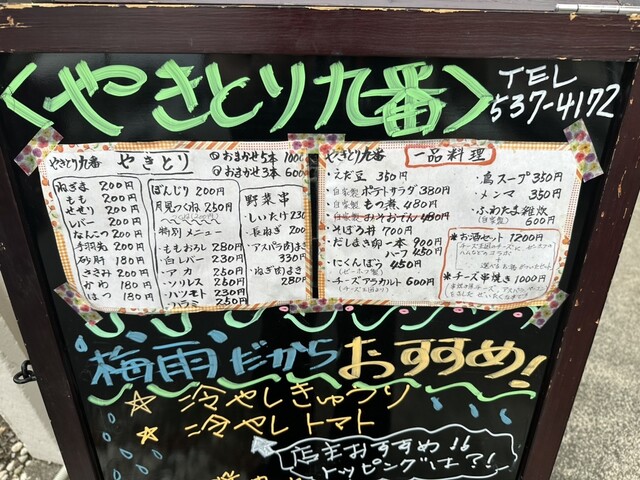 <やきとり九番>
TEL
537-4172
やきとり九番 やきとり
①おまかせ5本 1000
②おまかせ3本 600
ねぎま 200円
もも 200円
せせり 200円
レバー 200円
なんこつ 200円
手羽先 200円
砂肝 180円
ささみ 200円
かわ 180円
はつ 180円
ぼんじり 200円
月見つくね 250円
特別メニュー
ももおろし 280円
白レバー 230円
アカ 250円
ソリレス 260円
ハツモト 230円
ハラミ 250円
野菜串
しいたけ 230
長ねぎ 200
アスパラ肉まき
330円
ねぎ肉まき
280
やきとり九番 一品料理
えだ豆 350円
自家製 ポテトサラダ 380円
自家製 もつ煮 480円
自家製 みそおでん 480円
そぼろ丼 700円
だしまき卵 一本 900円
ハーフ 450円
にくんぼう 450円
(ビーホフ製)
チーズアラカルト 600円
・鳥スープ 350円
・メンマ 350円
・ふわたま雑炊
(自家製) 600円
*お酒セット 1200円
+
*チーズ串焼き 1000円
梅雨だからおすすめ!
☆冷やしきゅうり
☆冷やしトマト
店主おすすめ!!
トッピングは?!